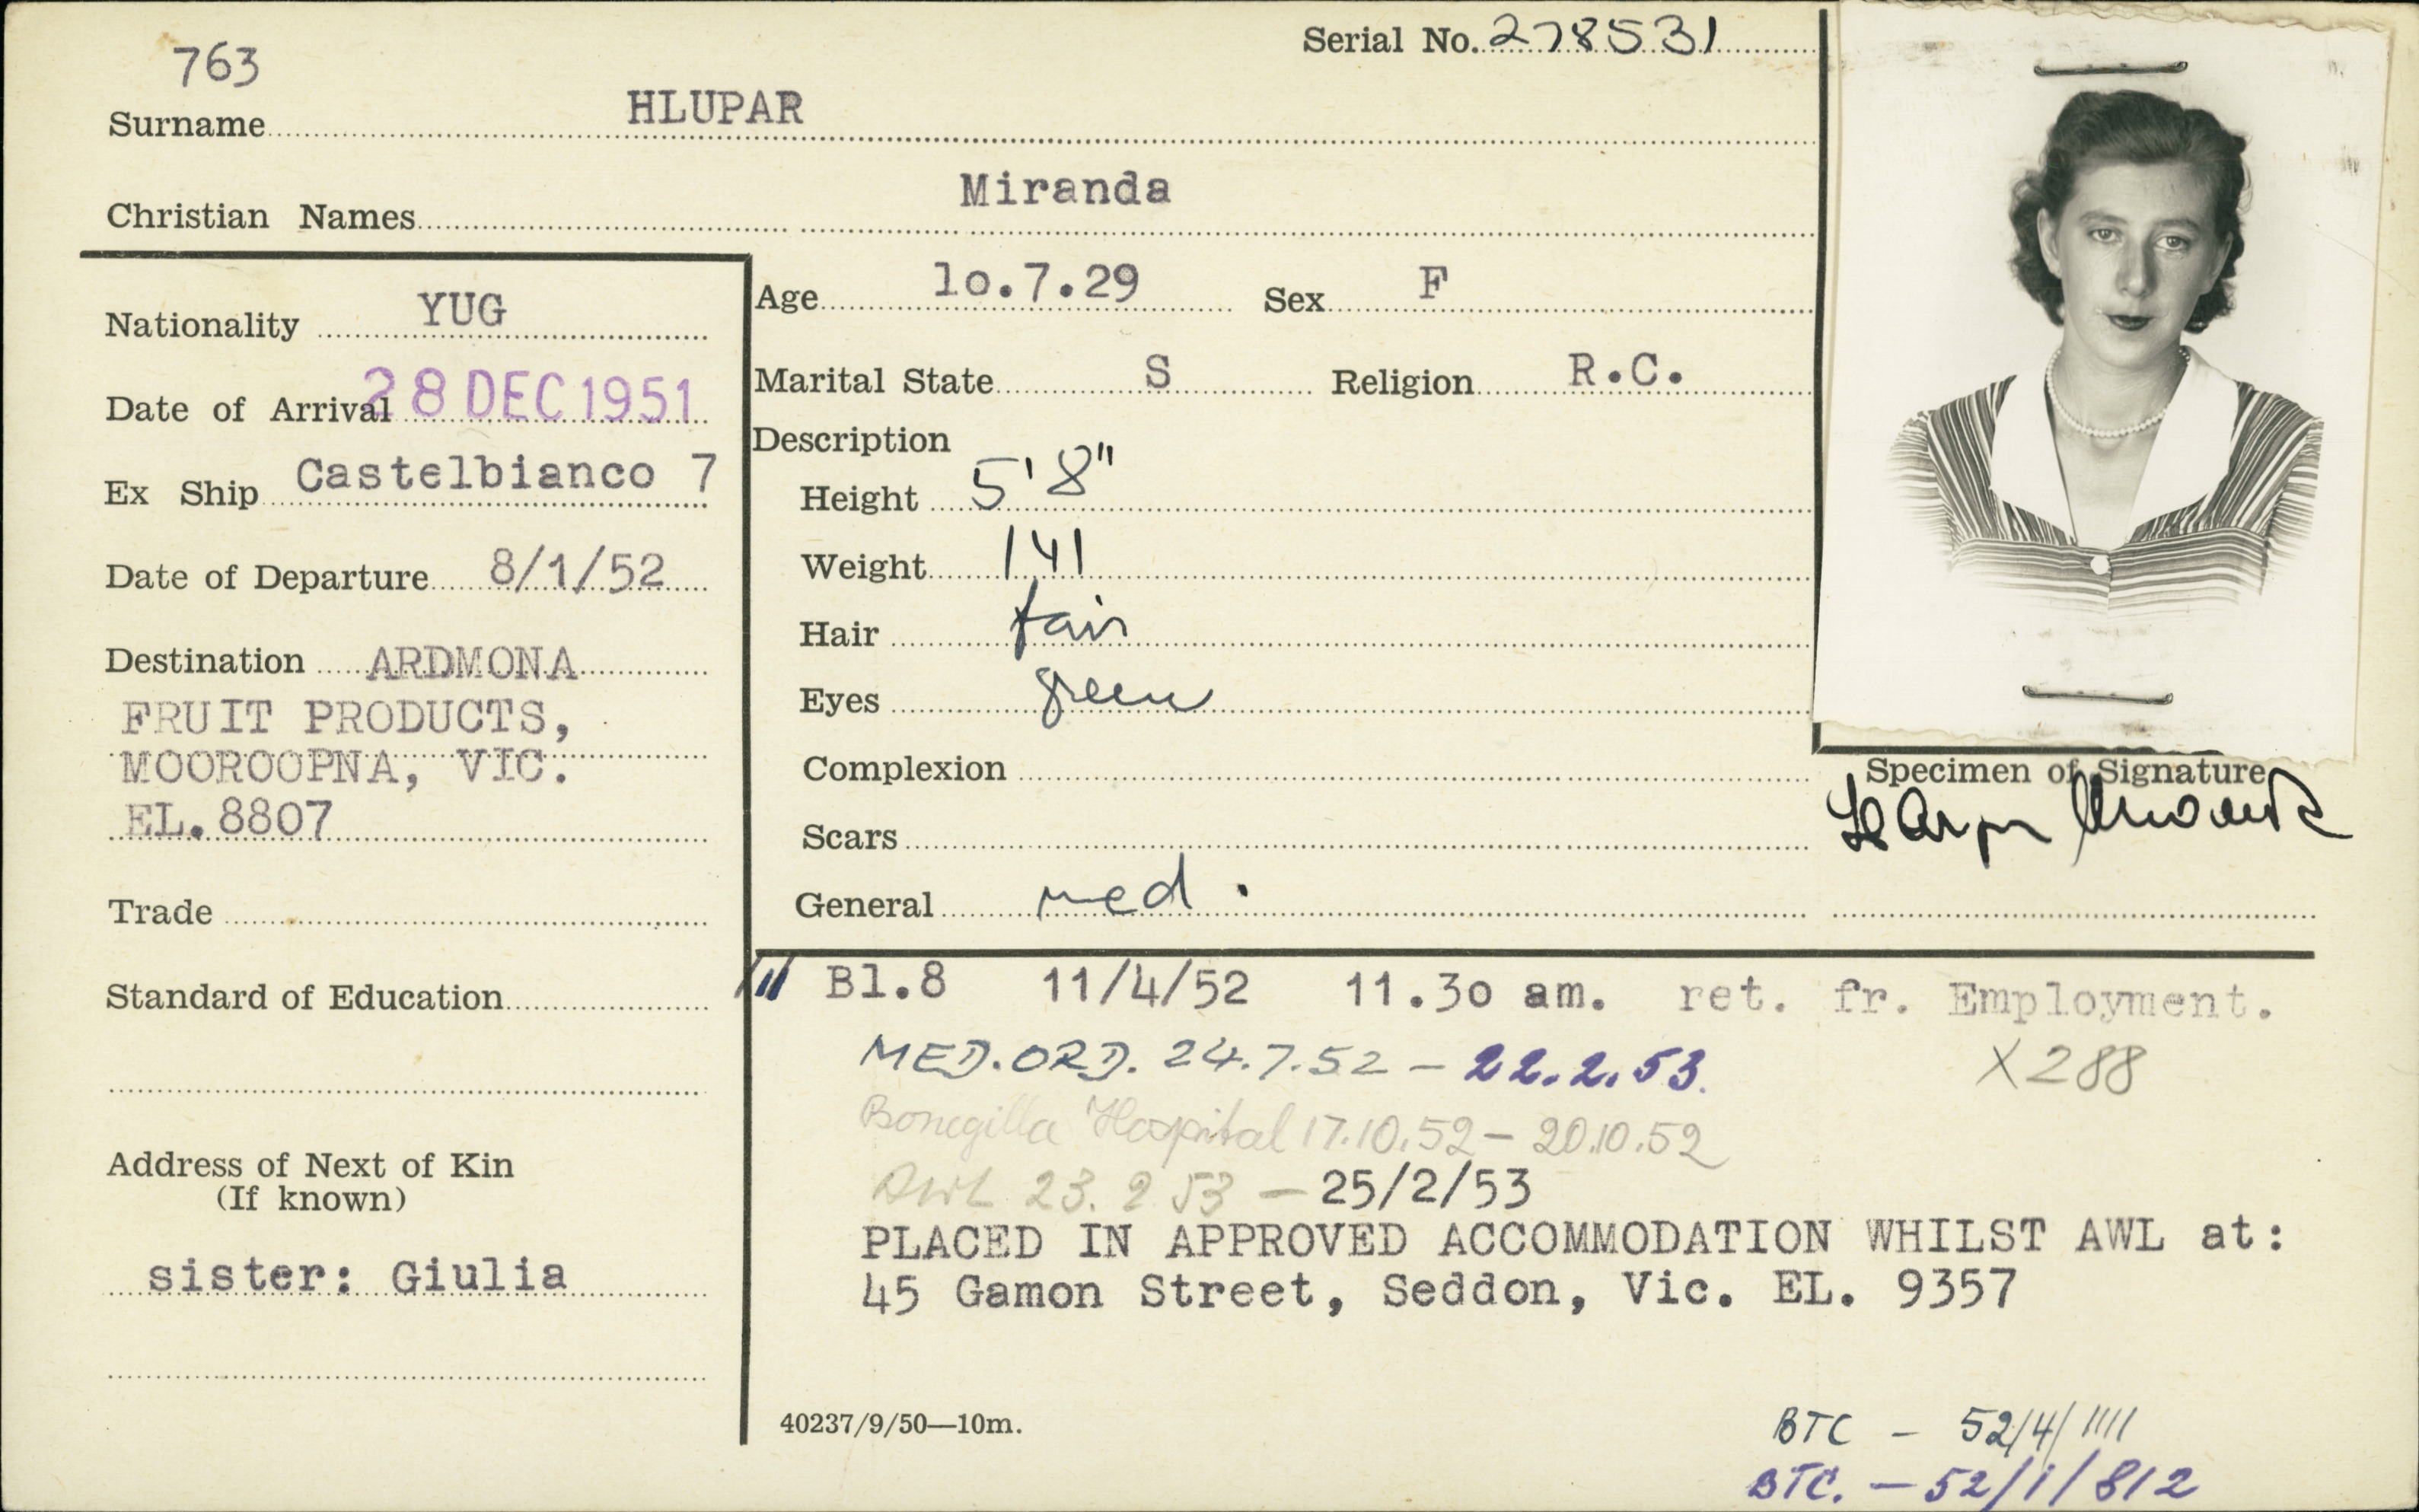 763
Serial No. 278531
Surname HLUPAR
Christian Names Miranda
Nationality YUG
Date of Arrival 28 DEC 1951
Ex Ship Castelbianco 7
Date of Departure 8/1/52
Destination ARDMONA
FRUIT PRODUCTS,
MOOROOPNA, VIC.
EL.8807
Trade
Standard of Education
Address of Next of Kin
(If known)
sister: Giulia
Age lo.7.29 Sex F
Marital State S Religion R.C.
Description
Height 5'8"
Weight 141
Hair fair
Eyes green
Complexion
Scars
General med.
Specimen of Signature
Bl.8 11/4/52 11.3o am. ret. fr. Employment.
MED. ORD. 24.7.52 – 22.2.53.
X288
Bonegilla Hospital 17.10.52 – 20.10.52
AWL 23.2.53 – 25/2/53
PLACED IN APPROVED ACCOMMODATION WHILST AWL at:
45 Gamon Street, Seddon, Vic. EL. 9357
40237/9/50—10m.
BTC – 52/4/1111
BTC. – 52/1/812